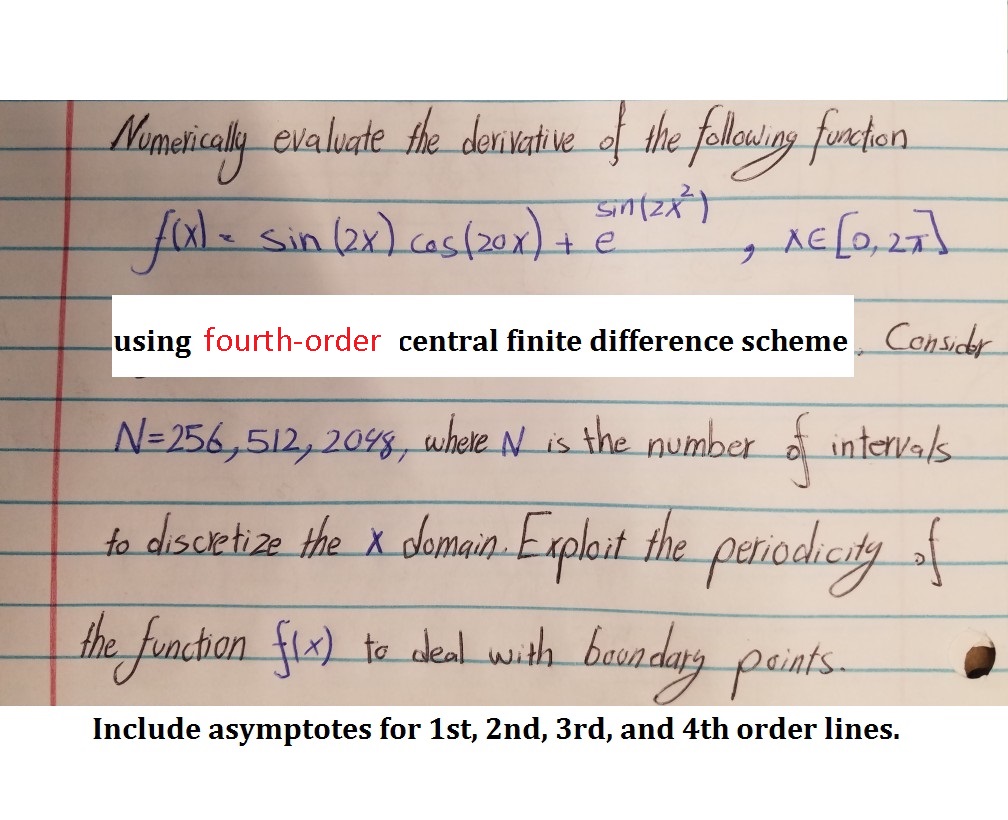 Numerically evaluate the derivative of the following function
f(x) = sin(2x) cos(20x) + e^{sin(2x²)}, x∈[0, 2π]
using fourth-order central finite difference scheme. Consider
N=256, 512, 2048, where N is the number of intervals
to discretize the x domain. Exploit the periodicity of
the function f(x) to deal with boundary points.
Include asymptotes for 1st, 2nd, 3rd, and 4th order lines.